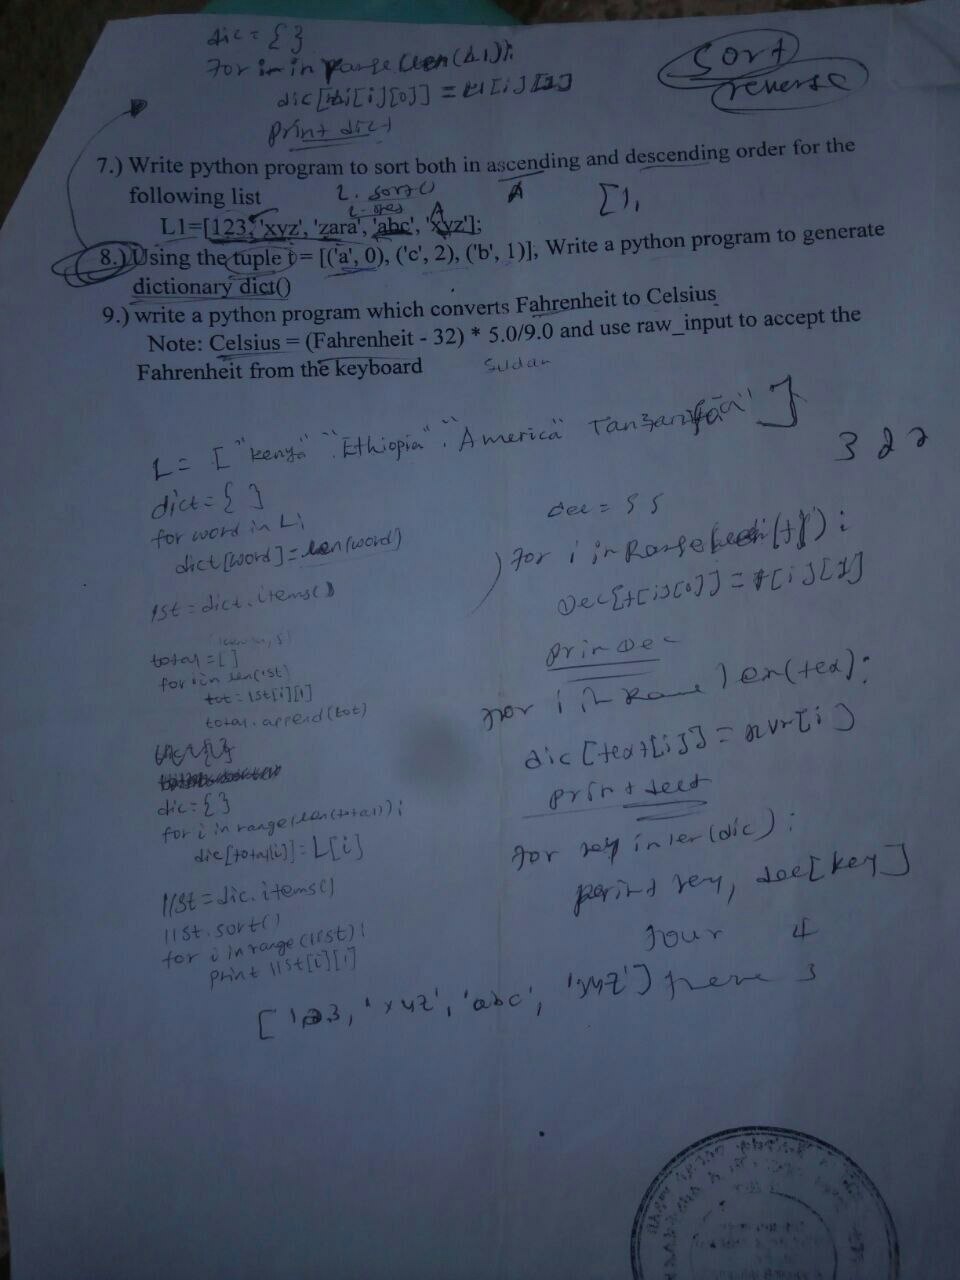 dic = { }
for i in range(len(L1)):
dic[L1[i][0]] = L1[i][1]
print dict
sort
reverse
7.) Write python program to sort both in ascending and descending order for the
following list
L. sort()
[1,
L1=[123, 'xyz', 'zara', 'abc', 'xyz'];
8.) Using the tuple t= [('a', 0), ('c', 2), ('b', 1)], Write a python program to generate
dictionary dict()
9.) write a python program which converts Fahrenheit to Celsius
Note: Celsius = (Fahrenheit - 32) * 5.0/9.0 and use raw_input to accept the
Fahrenheit from the keyboard
Sudan
L = ["kenya" "Ethiopia" "America" Tanzania" ]
3 2 2
dict = { }
for word in L:
dict[word] = len(word)
lst = dict.items()
total = [ ]
for i in len(lst)
tot = lst[i][1]
total.append(tot)
dic = { }
for i in range(len(total)):
dic[total[i]] = L[i]
llst = dic.items()
llst.sort()
for i in range(llst):
print llst[i][1]
for i in Range
Dec[t[i][0]] = t[i][1]
prin Dec
len(tex):
dic[text[i]] =
print
for key in len(dic):
print key, [key]
four 4
['123, 'xyz', 'abc', 'xyz'] 3